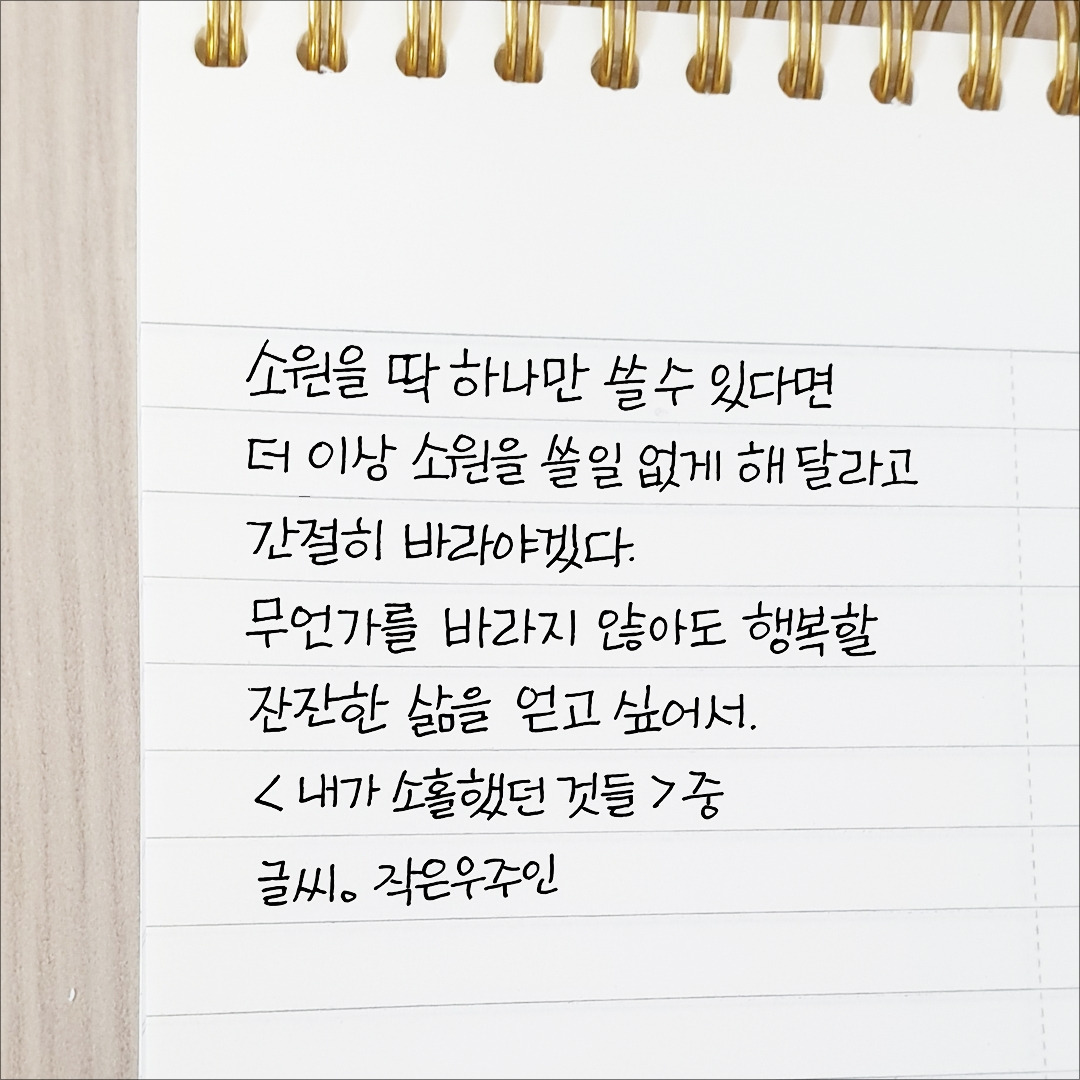 소원을 딱 하나만 쓸 수 있다면
더 이상 소원을 쓸 일 없게 해 달라고
간절히 바라야겠다.
무언가를 바라지 않아도 행복할
잔잔한 삶을 얻고 싶어서.
< 내가 소홀했던 것들 > 중
글씨。 작은우주인